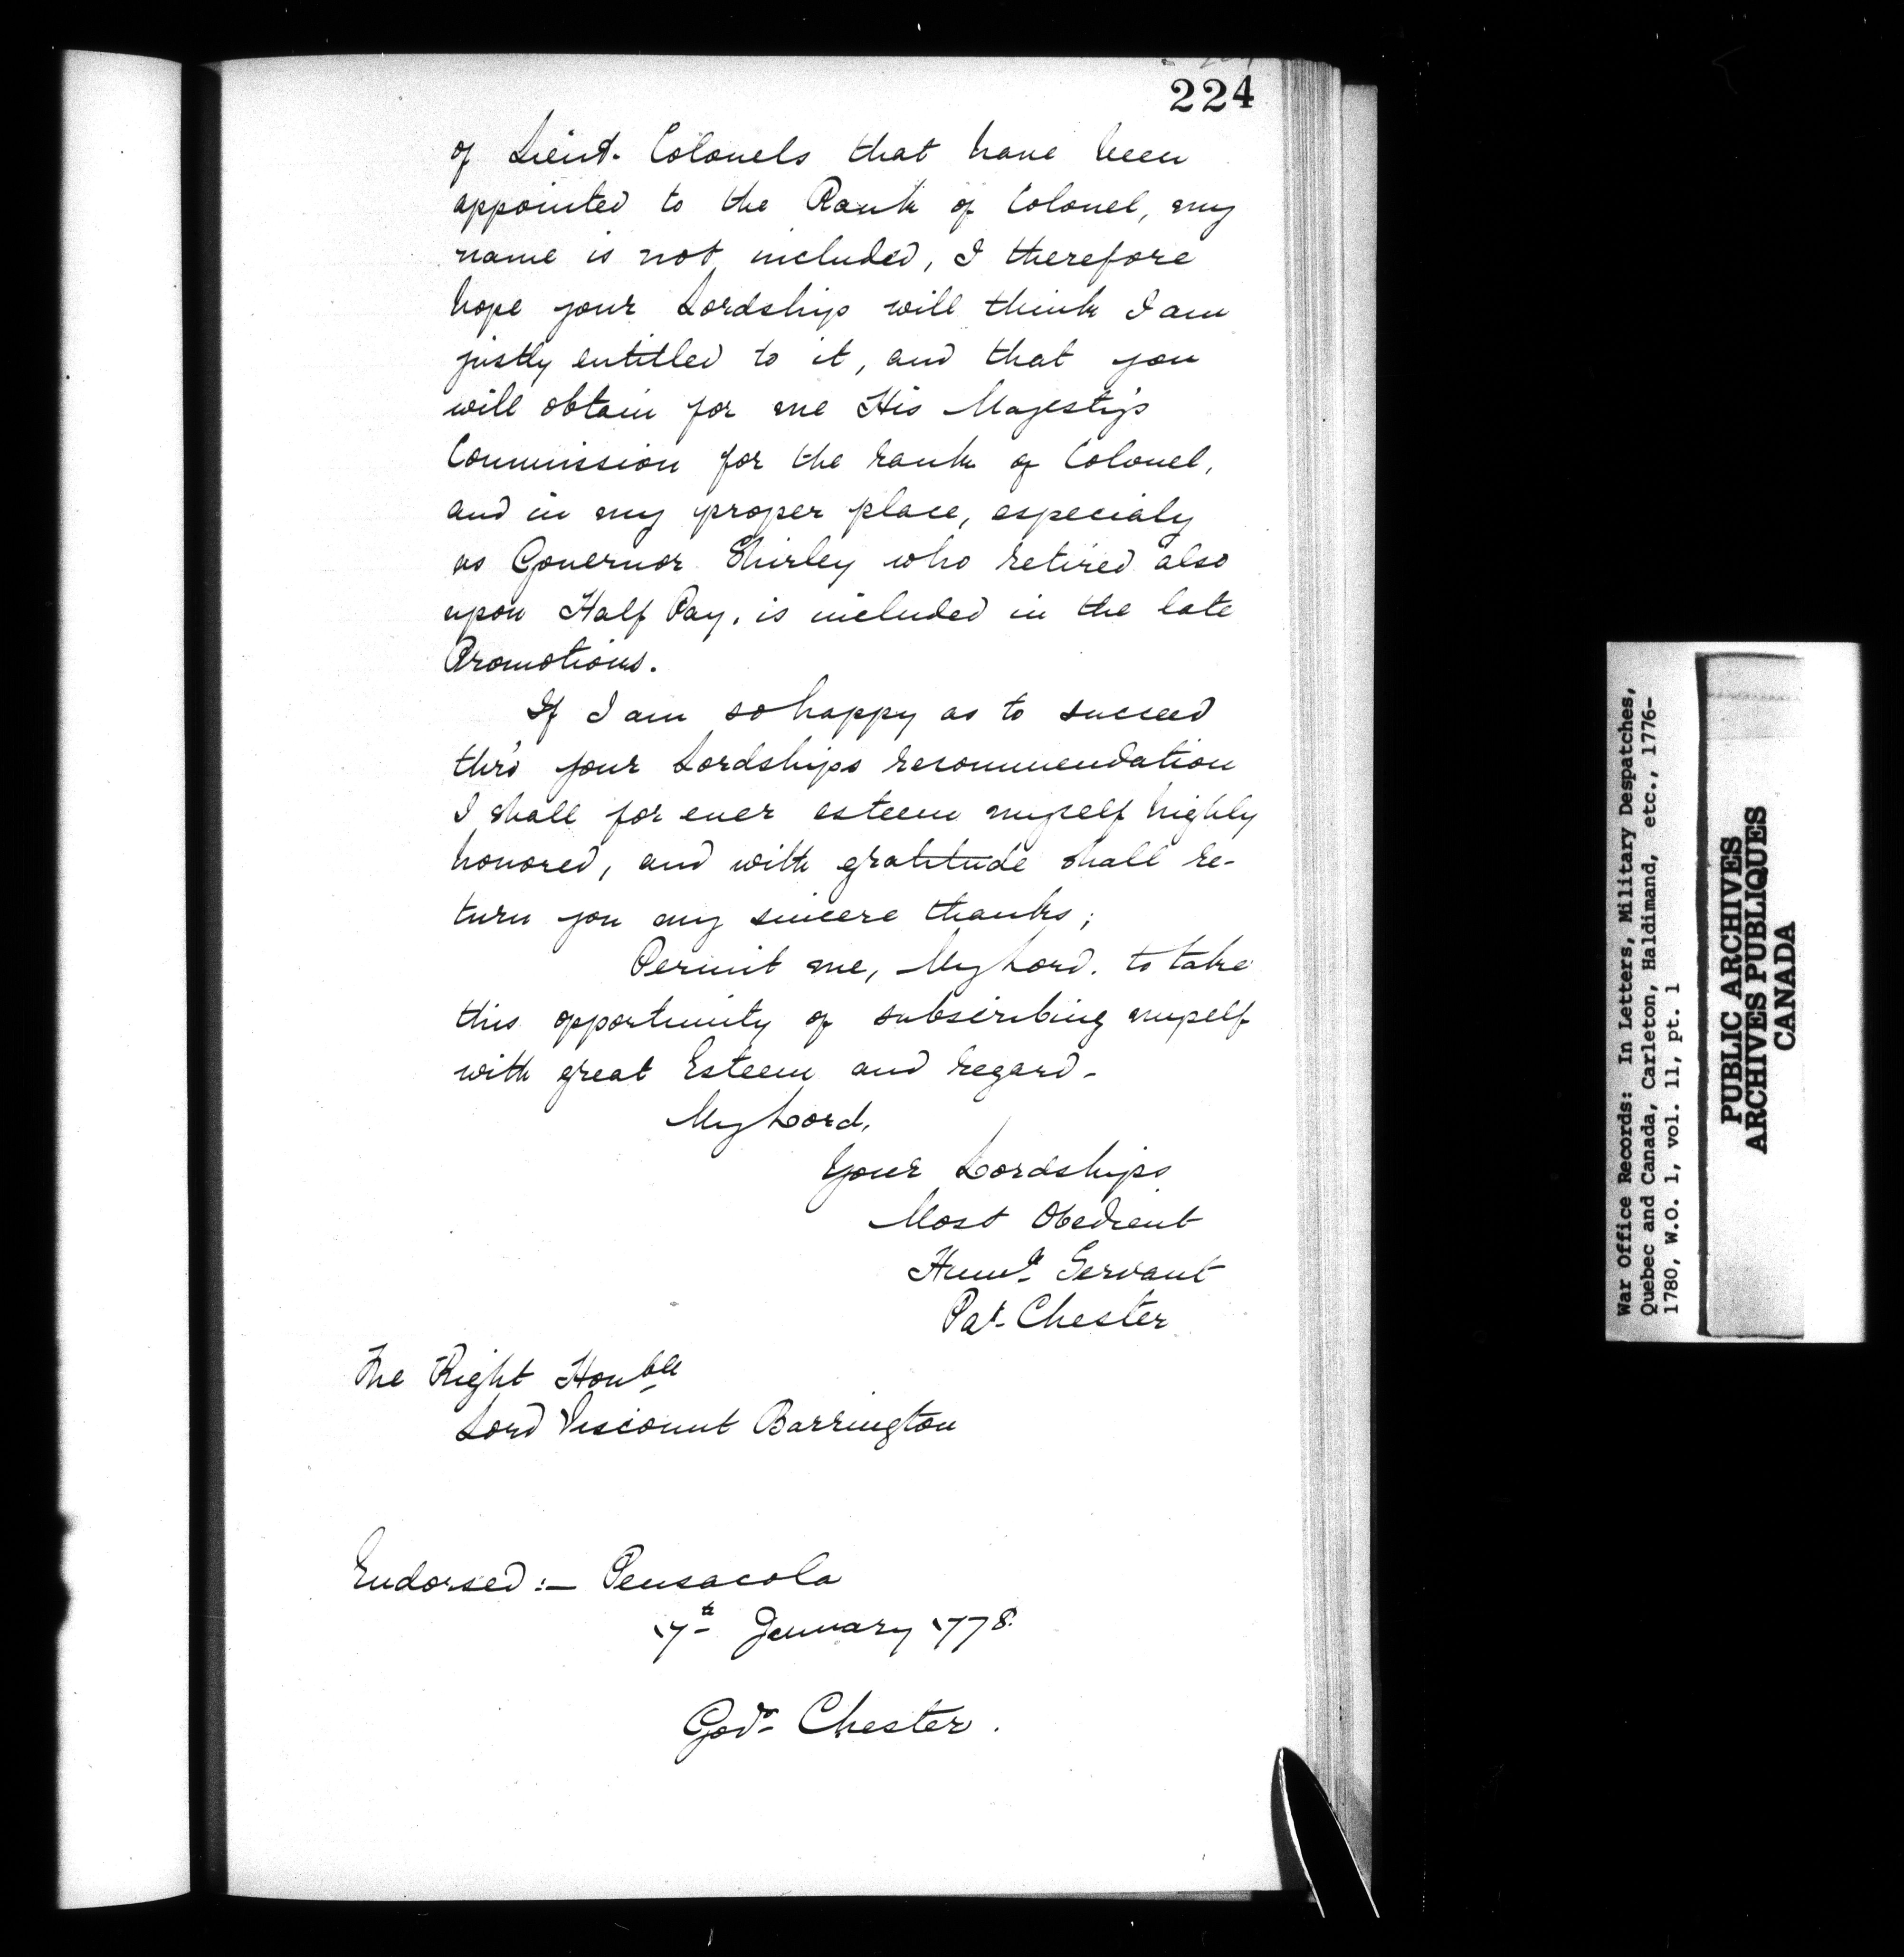 224
of Lieut. Colonels that have been
appointed to the Rank of Colonel, my
name is not included, I therefore
hope your Lordship will think I am
justly entitled to it, and that you
will obtain for me His Majesty's
Commission for the rank of Colonel,
and in my proper place, especialy
as Governor Shirley who retired also
upon Half Pay, is included in the late
Promotions.
If I am so happy as to succeed
thro' your Lordships recommendation
I shall for ever esteem myself highly
honored, and with gratitude shall re-
turn you my sincere thanks;
Permit me, My Lord. to take
this opportunity of subscribing myself
with great Esteem and regard -
My Lord,
Your Lordships
Most Obedient
Servant
Chester
The Right Honble
Lord Viscount Barrington
Endorsed :- Pensacola
7th January 1778.
Govr Chester.
War Office Records: In Letters, Military Despatches,
Quebec and Canada, Carleton, Haldimand, etc., 1776-
1780, W.O. 1, vol. 11, pt. 1
PUBLIC ARCHIVES
ARCHIVES PUBLIQUES
CANADA